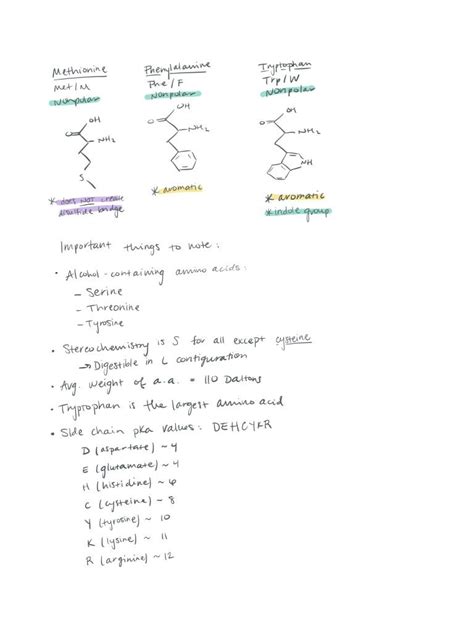 Methionine
Met/M
Nonpolar
Phenylalanine
Phe/F
Nonpolar
Tryptophan
Trp/W
Nonpolar
OH
O
NH₂
S
OH
O
NH₂
OH
O
NH₂
NH
* does NOT create
disulfide bridge
* aromatic
* aromatic
* indole group
Important things to note:
• Alcohol-containing amino acids:
- Serine
- Threonine
- Tyrosine
• Stereochemistry is S for all except cysteine
→ Digestible in L configuration
• Avg. weight of a.a. = 110 Daltons
• Tryptophan is the largest amino acid
• Side chain pKa values: DEHCYKR
D (aspartate) ~ 4
E (glutamate) ~ 4
H (histidine) ~ 6
C (cysteine) ~ 8
Y (tyrosine) ~ 10
K (lysine) ~ 11
R (arginine) ~ 12